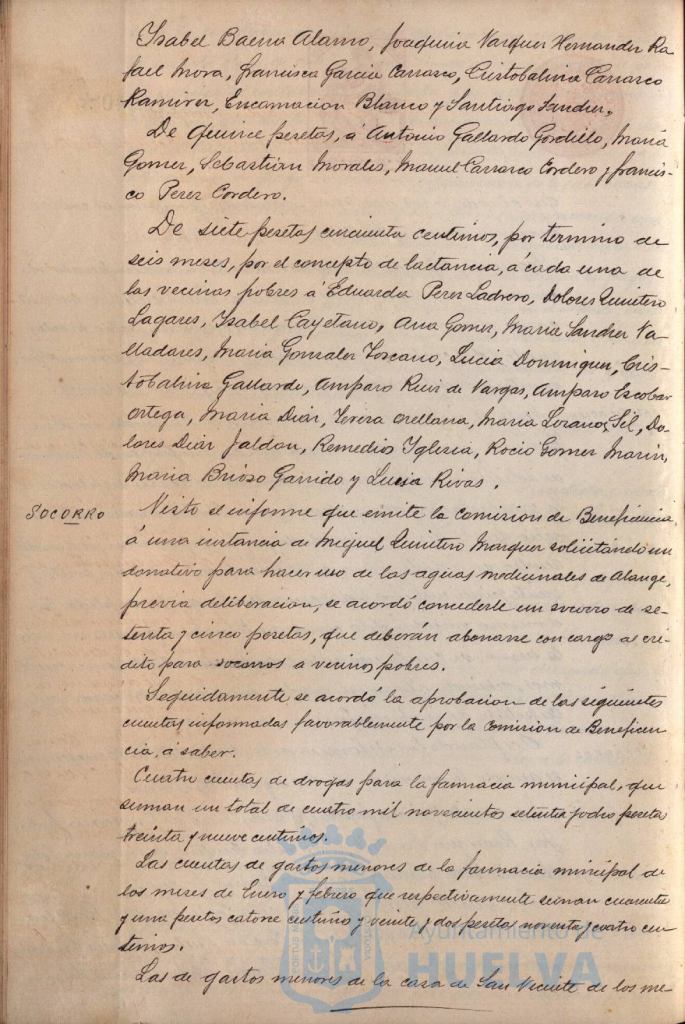 Isabel Baena Alamo, Joaquina Vazquez Hernandez Ra
fael Mora, Francisca Garcia Carrasco, Cristobalina Carrasco
Ramirez, Encarnacion Blanco y Santiago Sanchez.
De quince pesetas, á Antonio Gallardo Gordillo, Maria
Gomez, Sebastián Morales, Manuel Carrasco Cordero y Francis-
co Perez Cordero.
De siete pesetas cincuenta centimos, por termino de
seis meses, por el concepto de lactancia, á cada una de
las vecinas pobres á Eduarda Perez Ladrero, Dolores Quintero
Lagares, Isabel Cayetano, Ana Gomez, Maria Sanchez Va-
lladares, Maria Gonzalez Toscano, Lucia Dominguez, Cris-
tobalina Gallardo, Amparo Ruiz de Vargas, Amparo Escobar
Ortega, Maria Diaz, Teresa Orellana, Maria Lozano Gil, Do-
lores Diaz Jaldon, Remedios Iglesia, Rocio Gomez Marin,
Maria Brioso Garrido y Lucia Rivas.
SOCORRO
Visto el informe que emite la Comision de Beneficencia
á una instancia de Miguel Quintero Marquez solicitando un
donativo para hacer uso de las aguas medicinales de Alange,
previa deliberacion, se acordó concederle un socorro de se-
tenta y cinco pesetas, que deberán abonarse con cargo al cré-
dito para socorros a vecinos pobres.
Seguidamente se acordó la aprobacion de las siguientes
cuentas informadas favorablemente por la Comision de Beneficen-
cia, á saber.
Cuatro cuentas de drogas para la farmacia municipal, que
suman un total de cuatro mil novecientas setenta y ocho pesetas
treinta y nueve centimos.
Las cuentas de gastos menores de la farmacia municipal de
los meses de Enero y febrero que respectivamente suman cuarenta
y una pesetas catorce centimos y veinte y dos pesetas noventa y cuatro cen-
timos.
Las de gastos menores de la casa de San Vicente de los me-
Ayuntamiento de
HUELVA